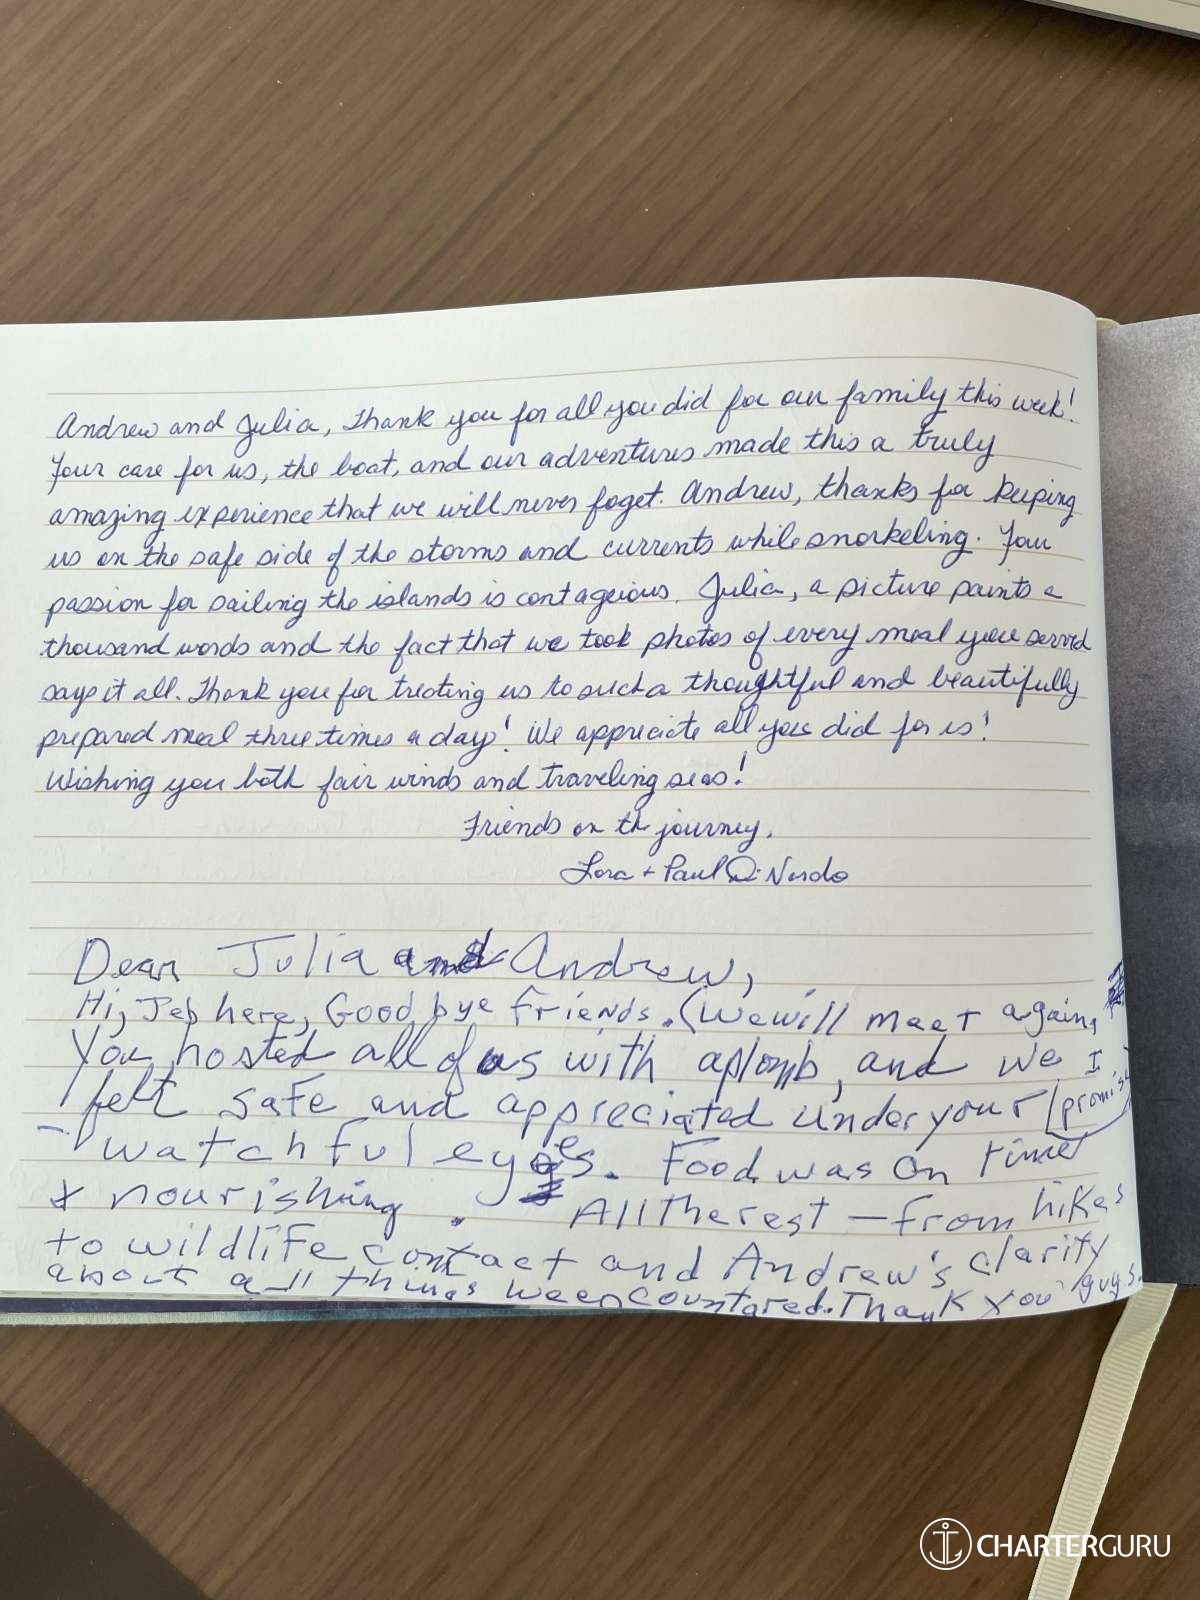 Andrew and Julia, Thank you for all you did for our family this week!
Your care for us, the boat, and our adventures made this a truly
amazing experience that we will never foget. Andrew, thanks for keeping
us on the safe side of the storms and currents while snorkeling. Your
passion for sailing the islands is contageious. Julia, a picture paints a
thousand words and the fact that we took photos of every meal you served
says it all. Thank you for treating us to such a thoughtful and beautifully
prepared meal three times a day! We appreciate all you did for us!
Wishing you both fair winds and traveling seas!
Friends on the journey,
Lora + Paul Di Nardo
Dear Julia and Andrew,
Hi, Jeb here, Good bye friends. (We will meet again,
I promise)
You hosted all of us with aplomb, and we
felt safe and appreciated under your
watchful eyes. Food was on time
+ nourishing. All the rest — from hikes
to wildlife contact and Andrew's clarity
about all things we encountared. Thank you guys.
CHARTERGURU